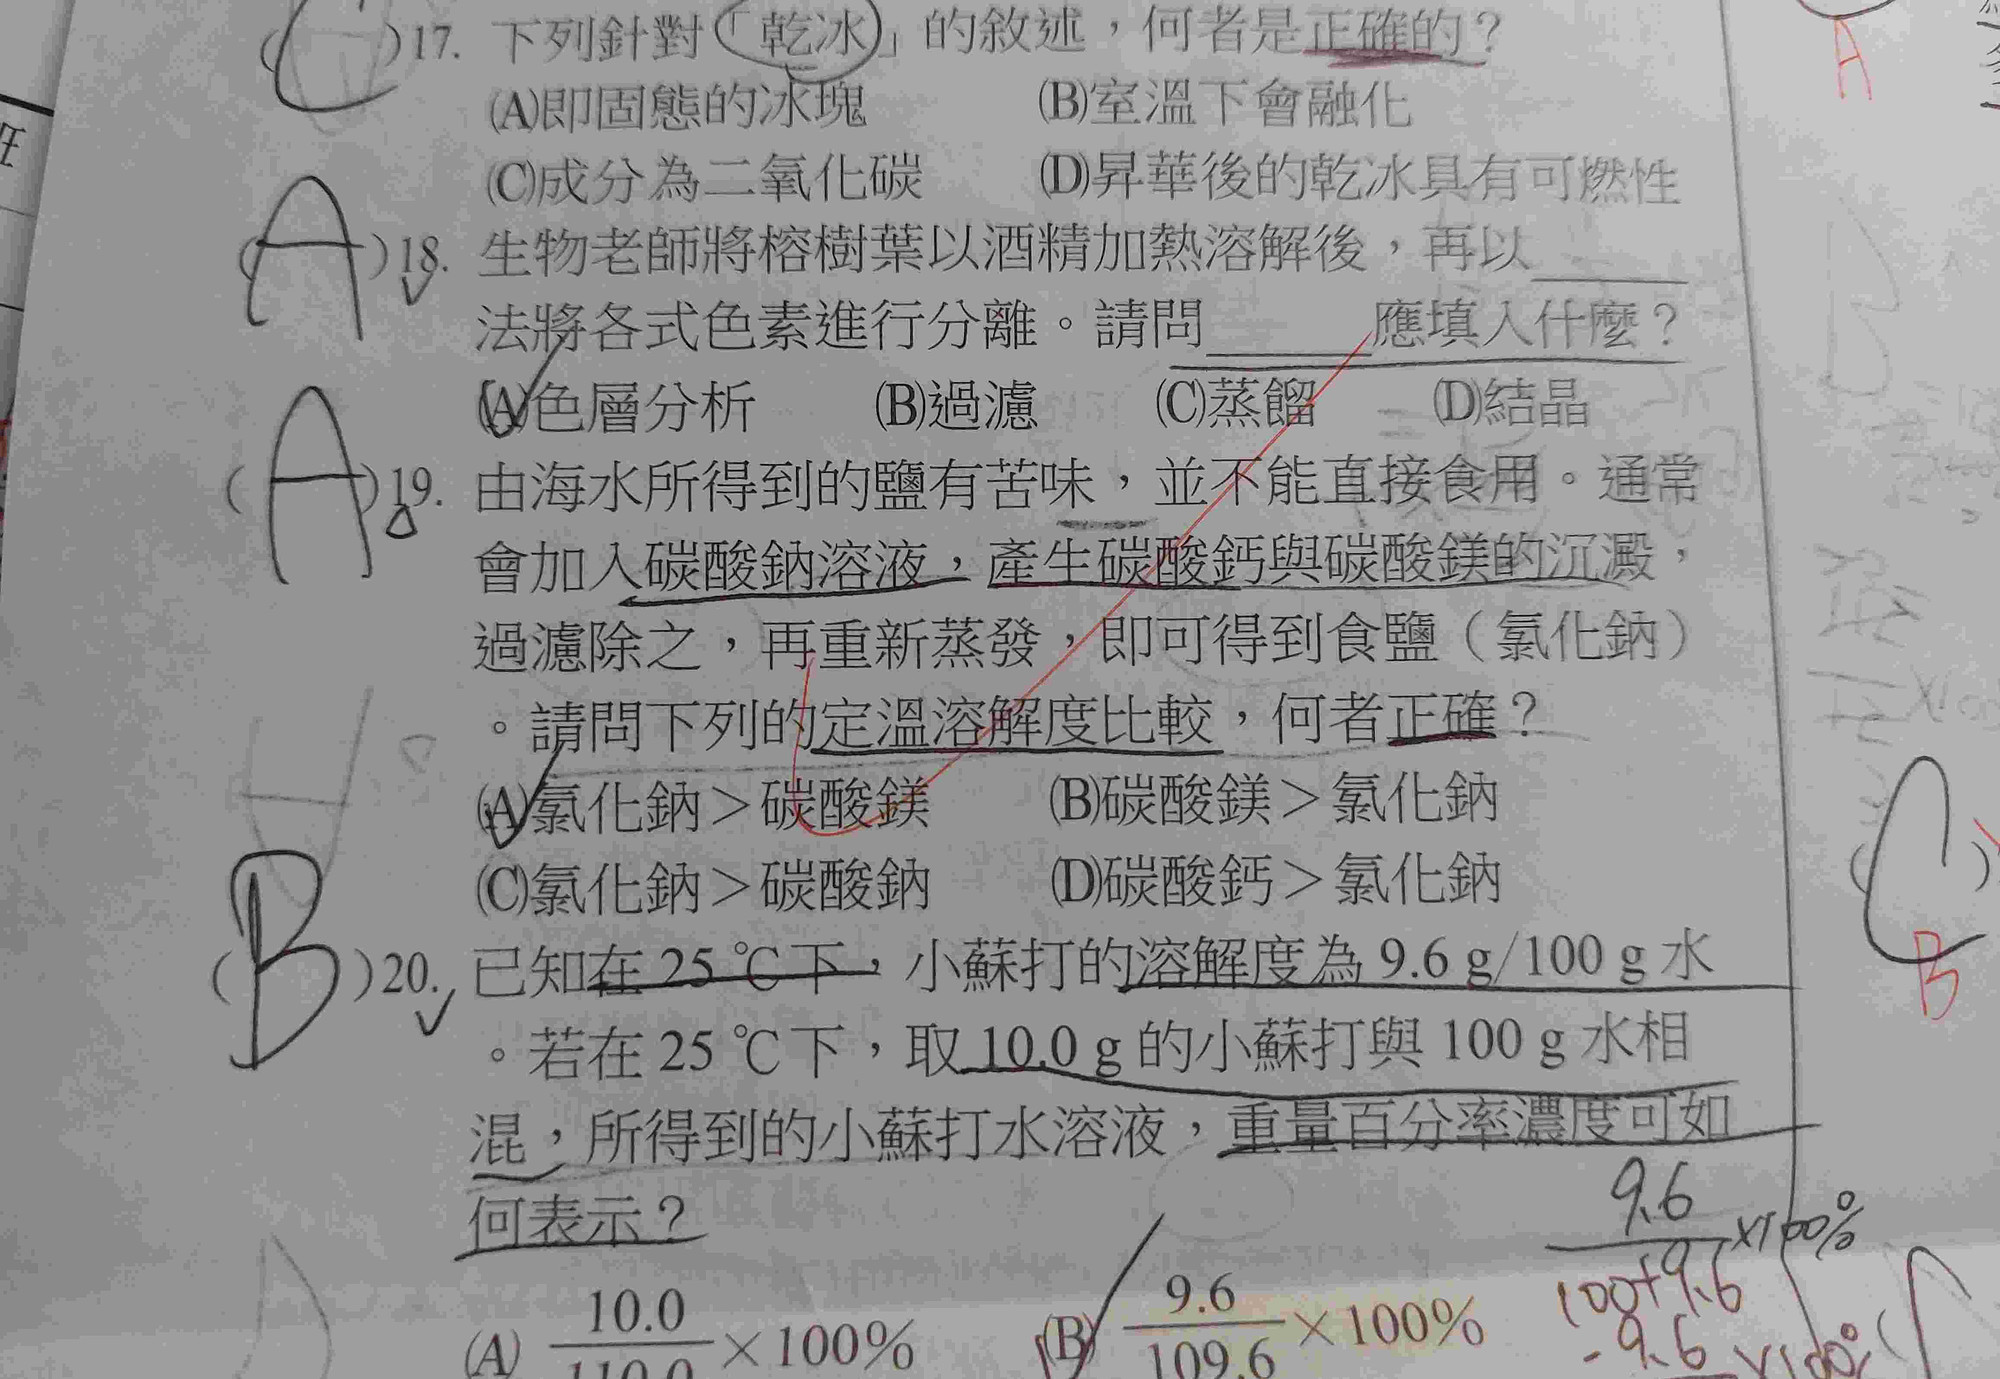 (C)17. 下列針對「乾冰」的敘述，何者是正確的？
(A)即固態的冰塊 (B)室溫下會融化
(C)成分為二氧化碳 (D)昇華後的乾冰具有可燃性
(A)18. 生物老師將榕樹葉以酒精加熱溶解後，再以______
法將各式色素進行分離。請問______應填入什麼？
(A)色層分析 (B)過濾 (C)蒸餾 (D)結晶
(A)19. 由海水所得到的鹽有苦味，並不能直接食用。通常
會加入碳酸鈉溶液，產生碳酸鈣與碳酸鎂的沉澱，
過濾除之，再重新蒸發，即可得到食鹽（氯化鈉）
。請問下列的定溫溶解度比較，何者正確？
(A)氯化鈉＞碳酸鎂 (B)碳酸鎂＞氯化鈉
(C)氯化鈉＞碳酸鈉 (D)碳酸鈣＞氯化鈉
(B)20. 已知在 25 ℃下，小蘇打的溶解度為 9.6 g/100 g 水
。若在 25 ℃下，取 10.0 g 的小蘇打與 100 g 水相
混，所得到的小蘇打水溶液，重量百分率濃度可如
何表示？
(A) 10.0/110.0 × 100% (B) 9.6/109.6 × 100%
9.6/100+9.6 ×100%
A
C
B